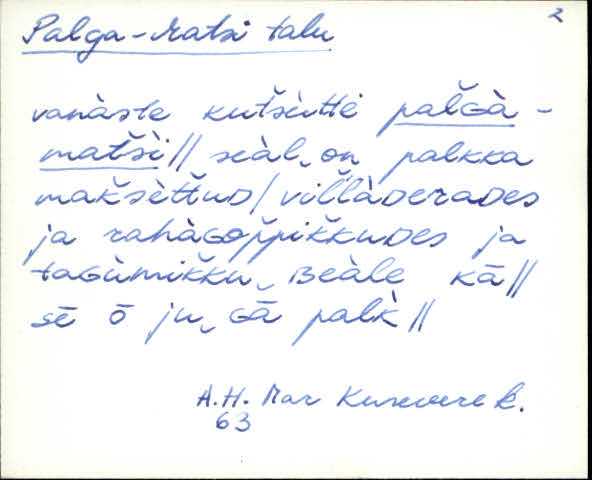 2
Palga-Matsi talu
vanàste kutšùtti palGà-
matši// seàl on palkka
maksèttuD/ villàDeraDes
ja rahàGoppikkuDes ja
taGùmikku Beàle kā//
sē ō ju Gā palk//
A.H. Mar Kurevere k.
63